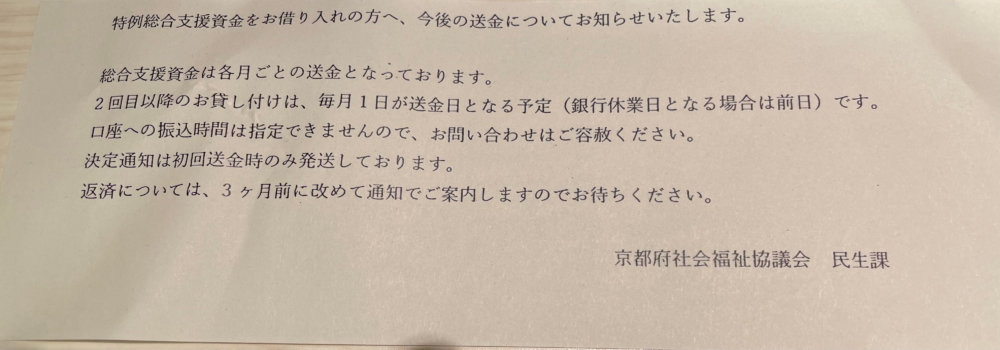 特例総合支援資金をお借り入れの方へ、今後の送金についてお知らせいたします。
総合支援資金は各月ごとの送金となっております。
２回目以降のお貸し付けは、毎月１日が送金日となる予定（銀行休業日となる場合は前日）です。
口座への振込時間は指定できませんので、お問い合わせはご容赦ください。
決定通知は初回送金時のみ発送しております。
返済については、３ヶ月前に改めて通知でご案内しますのでお待ちください。
京都府社会福祉協議会　民生課